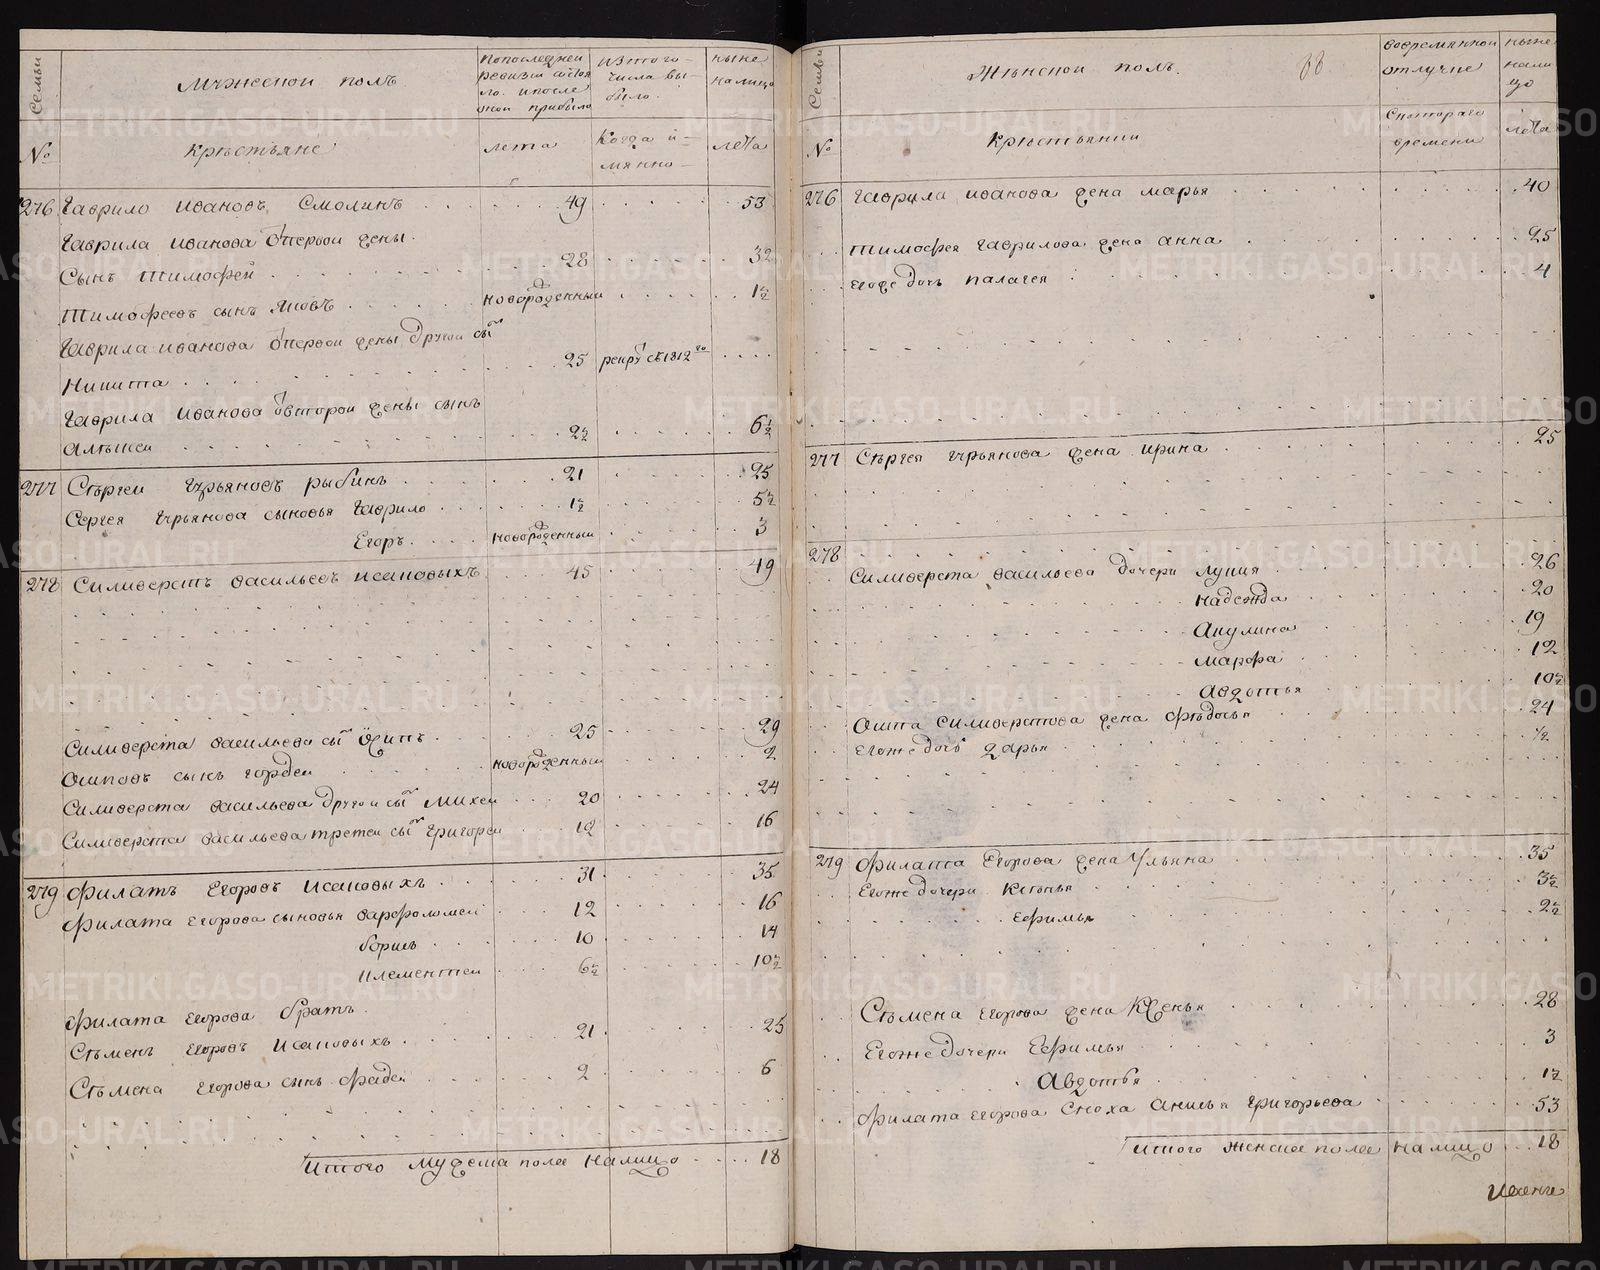 Семьи
№
Мужескои полъ
Крестьяне
Попоследнеи
ревизии состоя
ло. ипосле
онои прибыло
лета
Изтого
числа вы-
было.
Когда и-
мянно-
ныне
налицо
лета
276 Гаврило Ивановъ Смолинъ 49 53
Гаврила Иванова отпервои жены.
Сынъ Тимофеи 28 32
Тимофеевъ сынъ Яковъ новорожденныи 1½
Гаврила Иванова отпервои жены другои сынъ
Никита 25 рекрутъ 1812го
Гаврила Иванова отвторои жены сынъ
Алексеи 2½ 6½
277 Сергеи Гурьяновъ Рыбинъ 21 25
Сергея Гурьянова сыновья Гаврило 1½ 5½
Егоръ новорожденныи 3
278 Силиверстъ Васильевъ Исаковыхъ 45 49
Силиверста Васильева сынъ Осипъ 25 29
Осиповъ сынъ Гордеи новорожденныи 2
Силиверста Васильева другои сынъ Михеи 20 24
Силиверста Васильева третеи сынъ Григореи 12 16
279 Филатъ Егоровъ Исаковыхъ 31 35
Филата Егорова сыновья Варфоломеи 12 16
Борисъ 10 14
Клементеи 6½ 10½
Филата Егорова братъ
Семенъ Егоровъ Исаковыхъ 21 25
Семена Егорова сынъ Фадеи 2 6
Итого мужеска пола налицо 18
Семьи
№
Женскои полъ.
88
Крестьянки
вовремяннои
отлучке
Скотораго
времени
ныне
нали
цо
лета
276 Гаврила Иванова жена Марья 40
Тимофея Гаврилова жена Анна 25
Егоже дочь Палагея 4
277 Сергея Гурьянова жена Ирина 25
278
Силиверста Васильева дочери Лукия 26
Надежда 20
Акулина 19
Марфа 12
Авдотья 10½
Осипа Силиверстова жена Федосья 24
Егоже дочь Дарья ½
279 Филата Егорова жена Ульяна 35
Егоже дочери Ксенья 3½
Ефимья 2½
Семена Егорова жена Ксенья 28
Егоже дочери Ефимья 3
Авдотья 1½
Филата Егорова сноха Анисья Григорьева 53
Итого женска пола налицо 18